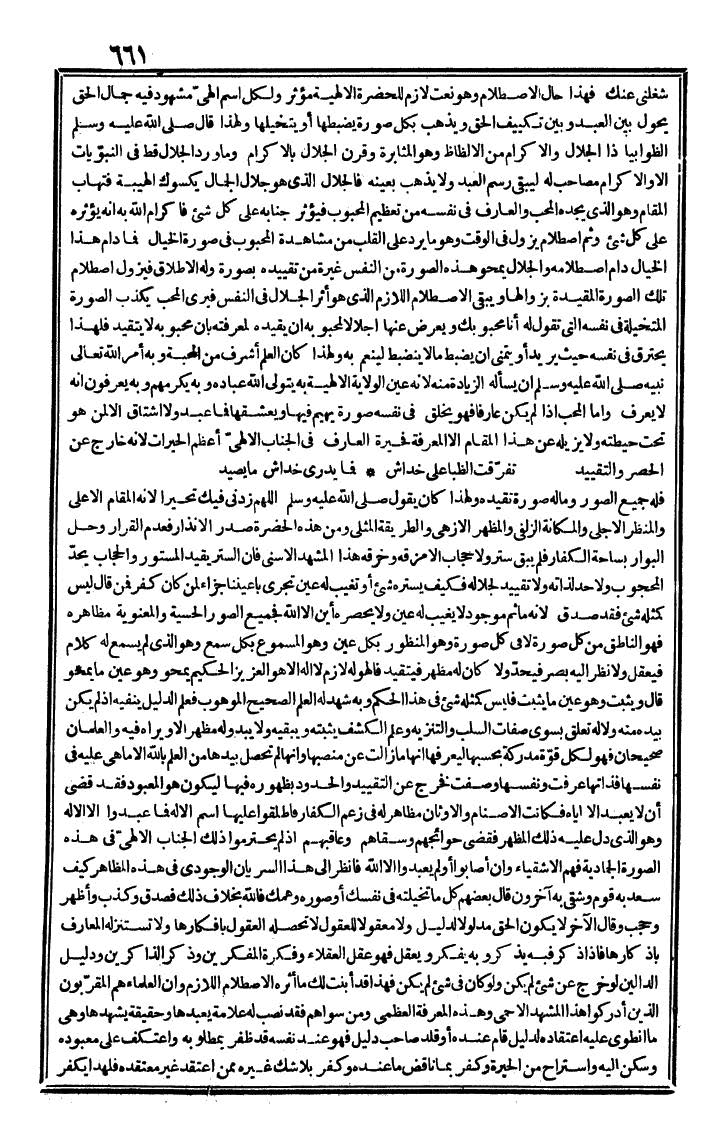 ٦٦١
شغلنى عنك فهذا حال الاصطلام وهو نعت لازم للحضرة الالهية مؤثر ولكل اسم الهىّ مشهود فيه جمال الحق
يحول بين العبد وبين تكييف الحق ويذهب بكل صورة يضبطها أو يتخيلها ولهذا قال صلى الله عليه وسلم
الظوا بيا ذا الجلال والاكرام من الالظاظ وهو المثابرة وقرن الجلال بالاكرام وما ورد الجلال قط فى النبوّيات
الا والاكرام مصاحب له ليبقى رسم العبد ولا يذهب بعينه فالجلال الذى هو جلال الجمال يكسوك الهيبة فتهاب
المقام وهو الذى يجده المحب والعارف فى نفسه من تعظيم المحبوب فيؤثر جنابه على كل شئ فاكرام الله به انه يؤثره
على كل شئ وثم اصطلام يزول فى الوقت وهو ما يرد على القلب من مشاهدة المحبوب فى صورة الخيال فادام هذا
الخيال دام اصطلامه والجلال بمحو هذه الصورة من النفس غيرة من تقييده بصورة وله الاطلاق فيزول اصطلام
تلك الصورة المقيدة بزوالها ويبقى الاصطلام اللازم الذى هو أثر الجلال فى النفس فيرى المحب يكذب الصورة
المتخيلة فى نفسه التى تقول له أنا محبوبك ويعرض عنها اجلالا لمحبوبه ان يقيده لمعرفته بان محبوبه لا يتقيد فلهذا
يحترق فى نفسه حيث يريد أو يتمنى ان يضبط ما لا ينضبط لينعم به ولهذا كان العلم أشرف من المحبة وبه أمر الله تعالى
نبيه صلى الله عليه وسلم ان يسأله الزيادة منه لانه عين الولاية الالهية به يتولى الله عباده وبه يكرمهم وبه يعرفون انه
لا يعرف واما المحب اذا لم يكن عارفا فهو يخلق فى نفسه صورة يهيم فيها ويعشقها فا عبد ولا اشتاق الا لمن هو
تحت حيطته ولا يزيله عن هذا المقام الا المعرفة فيرة العارف فى الجناب الالهىّ أعظم الحيرات لانه خارج عن
الحصر والتقييد تفرّقت الظبا على خداش * فما يدرى خداش ما يصيد
فله جميع الصور وماله صورة تقيده ولهذا كان يقول صلى الله عليه وسلم اللهم زدنى فيك تحيرا لانه المقام الاعلى
والمنظر الاجلى والمكانة الزلفى والمظهر الازهى والطريقة المثلى ومن هذه الحضرة صدر الانذار فعدم القرار وحل
البوار بساحة الكفار فلم يبق ستر ولا حجاب الا مزقه وخرقه هذا المشهد الاسنى فان الستر يقيد المستور والحجاب يحدّ
المحجوب ولا حد لذاته ولا تقييد لجلاله فكيف يستره شئ أو تغيب له عين تجرى باعيننا جزاء لمن كان كفر فمن قال ليس
كمثله شئ فقد صدق لانه ما ثم موجود لا يغيب له عين ولا يحصره أين الا الله فجميع الصور الحسية والمعنوية مظاهره
فهو الناطق من كل صورة لا فى كل صورة وهو المنظور بكل عين وهو المسموع بكل سمع وهو الذى لم يسمع له كلام
فيعقل ولا نظر اليه بصر فيحدّ ولا كان له مظهر فيتقيد فالهو له لازم لا اله الا هو العزيز الحكيم يمحو وهو عين ما يمحو
قال ويثبت وهو عين ما يثبت فليس كمثله شئ فى هذا الحكم وبه شهد له العلم الصحيح الموهوب فعلم الدليل ينفيه اذ لم يكن
بيده منه ولا له تعلق بسوى صفات السلب والتنزيه وعلم الكشف يثبته ويبقيه ولا يبدو له مظهر الا ويراه فيه والعلمان
صحيحان فهو لكل قوّة مدركة بحسبها ليعرفها انها ما زالت عن منصبها وانها لم تحصل بيدها من العلم بالله الا ما هى عليه فى
نفسها فذاتها عرفت ونفسها وصفت فخرج عن التقييد والحدود بظهوره فيها ليكون هو المعبود فقد قضى
أن لا يعبد الا اياه فكانت الاصنام والاوثان مظاهر له فى زعم الكفار فاطلقوا عليها اسم الاله فا عبدوا الا الاله
وهو الذى دل عليه ذلك المظهر فقضى حوائجهم وسقاهم وعاقبهم اذ لم يحترموا ذلك الجناب الالهىّ فى هذه
الصورة الجادية فهم الاشقياء وان أصابوا أو لم يعبدوا الا الله فانظر الى هذا السريان الوجودى فى هذه المظاهر كيف
سعد به قوم وشقى به آخرون قال بعضهم كل ما تخيلته فى نفسك أو صوره وهمك فالله بخلاف ذلك فصدق وكذب وأظهر
وحجب وقال الآخر لا يكون الحق مدلولا لدليل ولا معقولا للعقول لا تحصله العقول بافكارها ولا تستنزله المعارف
باذكارها فاذا ذكر فبه يذكر وبه يفكر ويعقل فهو عقل العقلاء وفكرة المفكرين وذكر الذاكرين ودليل
الدالين لو خرج عن شئ لم يكن ولو كان فى شئ لم يكن فهذا قد أبنت لك ما أثره الاصطلام اللازم وان العلماء هم المقرّبون
الذين أدركوا هذا المشهد الاحمى وهذه المعرفة العظمى ومن سواهم فقد نصب له علامة يعبدها وحقيقة يشهدها وهى
ما انطوى عليه اعتقاده لدليل قام عنده أو قلد صاحب دليل فهو عند نفسه قد ظفر بمطلوبه واعتكف على معبوده
وسكن اليه واستراح من الحيرة وكفر بما ناقض ما عنده وكفر بلا شك غيره ممن اعتقد غير معتقده فلهذا يكفر